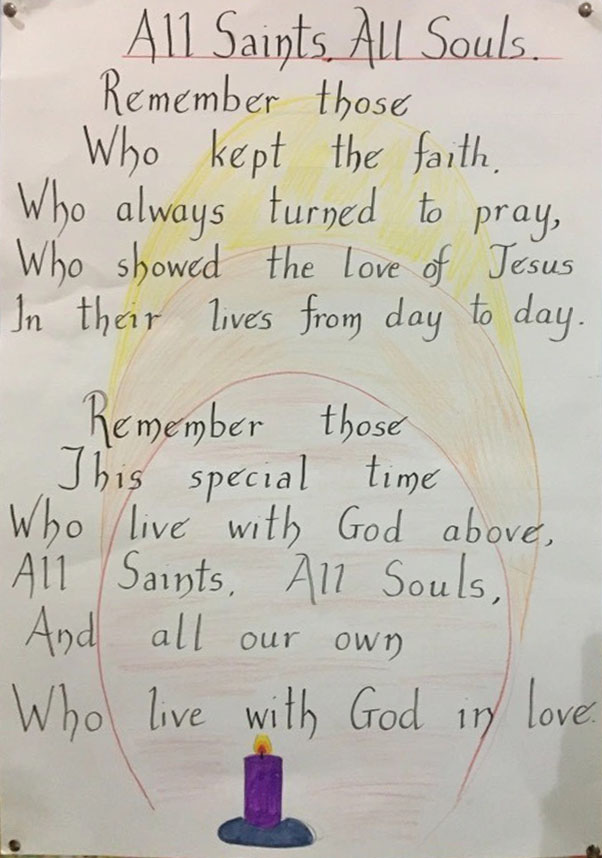 All Saints, All Souls.
Remember those
Who kept the faith.
Who always turned to pray,
Who showed the love of Jesus
In their lives from day to day.
Remember those
This special time
Who live with God above,
All Saints, All Souls,
And all our own
Who live with God in love.